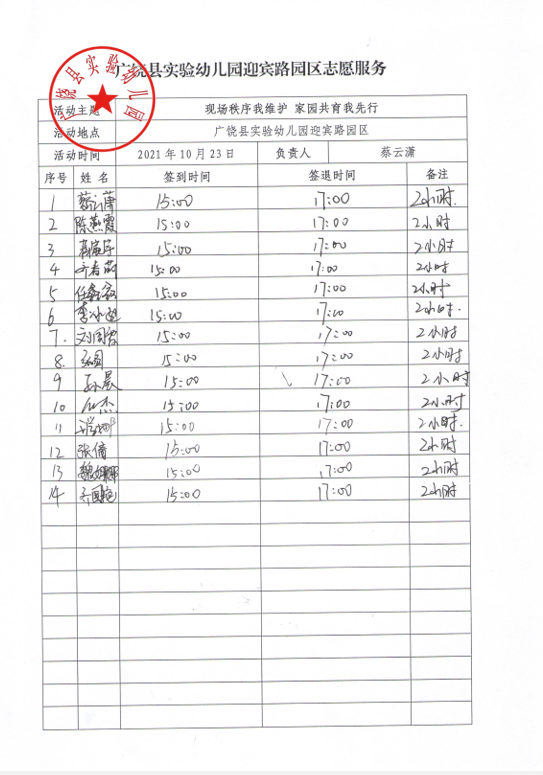 广饶县实验幼儿园迎宾路园区志愿服务
活动主题 现场秩序我维护 家园共育我先行
活动地点 广饶县实验幼儿园迎宾路园区
活动时间 2021年10月23日 负责人 蔡云潇
序号 姓名 签到时间 签退时间 备注
1 蔡云潇 15:00 17:00 2小时.
2 陈燕霞 15:00 17:00 2小时
3 15:00 17:00 2小时
4 15:00 17:00 2小时
5 15:00 17:00 2小时
6 15:00 17:00 2小时.
7. 15:00 17:00 2小时
8. 15:00 17:00 2小时
9 孙晨 15:00 17:00 2小时
10 15:00 17:00 2小时
11 15:00 17:00 2小时.
12 张倩 15:00 17:00 2小时
13 15:00 17:00 2小时
14 15:00 17:00 2小时